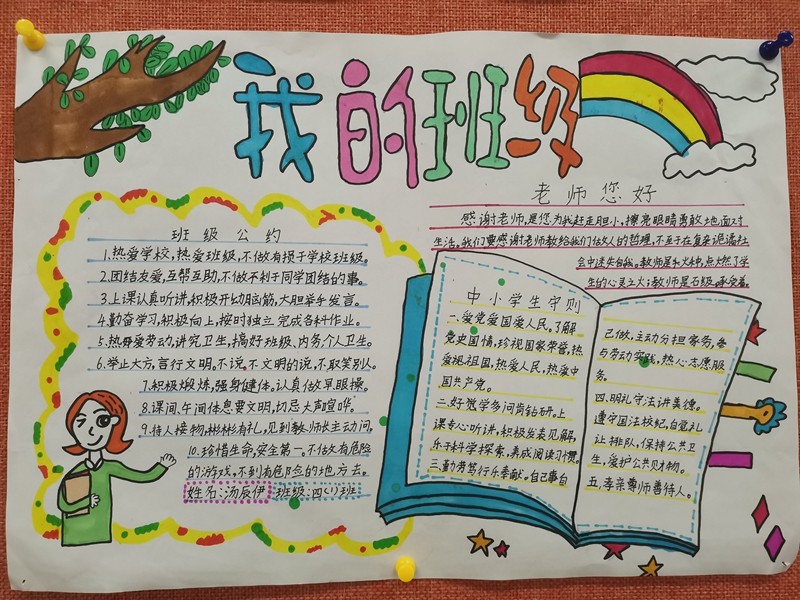 我的班级
班级公约
1.热爱学校,热爱班级,不做有损于学校班级。
2.团结友爱,互帮互助,不做不利于同学团结的事。
3.上课认真听讲,积极开动脑筋,大胆举手发言。
4.勤奋学习,积极向上,按时独立完成各科作业。
5.热爱劳动,讲究卫生,搞好班级、内务个人卫生。
6.举止大方,言行文明。不说不文明的说,不取笑别人。
7.积极煅炼,强身健体。认真做早眼操。
8.课间、午间休息要文明,切忌大声喧哗。
9.待人接物,彬彬有礼,见到教师主动问。
10.珍惜生命,安全第一。不做有危险
的游戏,不到有危险的地方去。
姓名:汤辰伊 班级:四(1)班
老师您好
感谢老师,是您为我赶走胆小,擦亮眼睛勇敢地面对
生活。我们要感谢老师教给我们做人的哲理,不至于在复杂诡谲社
会中迷失自我。教师是和火烛,点燃了学
生的心灵之火;教师是石级,承受着
中小学生守则
一.爱党爱国爱人民。了解
党史国情,珍视国家荣誉,热
爱祖国,热爱人民,热爱中
国共产党。
二.好学多问肯钻研。上
课专心听讲,积极发表见解,
乐于科学探索,养成阅读习惯。
三.勤劳笃行乐奉献。自己事自
己做,主动分担家务,参
与劳动实践,热心志愿服
务。
四.明礼守法讲美德。
遵守国法校纪,自觉礼
让排队,保持公共卫
生,爱护公共财物。
五.孝亲尊师善待人。